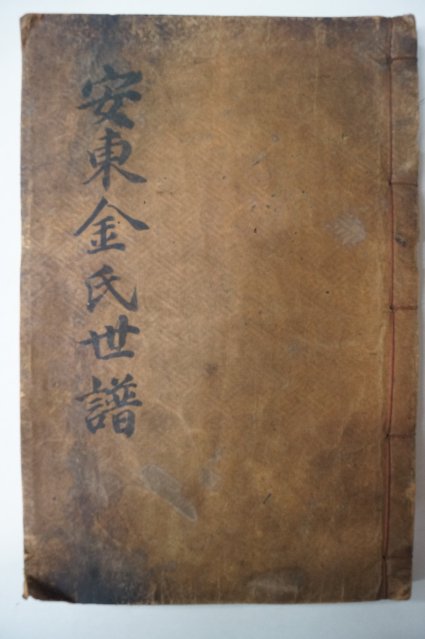 安東金氏世譜